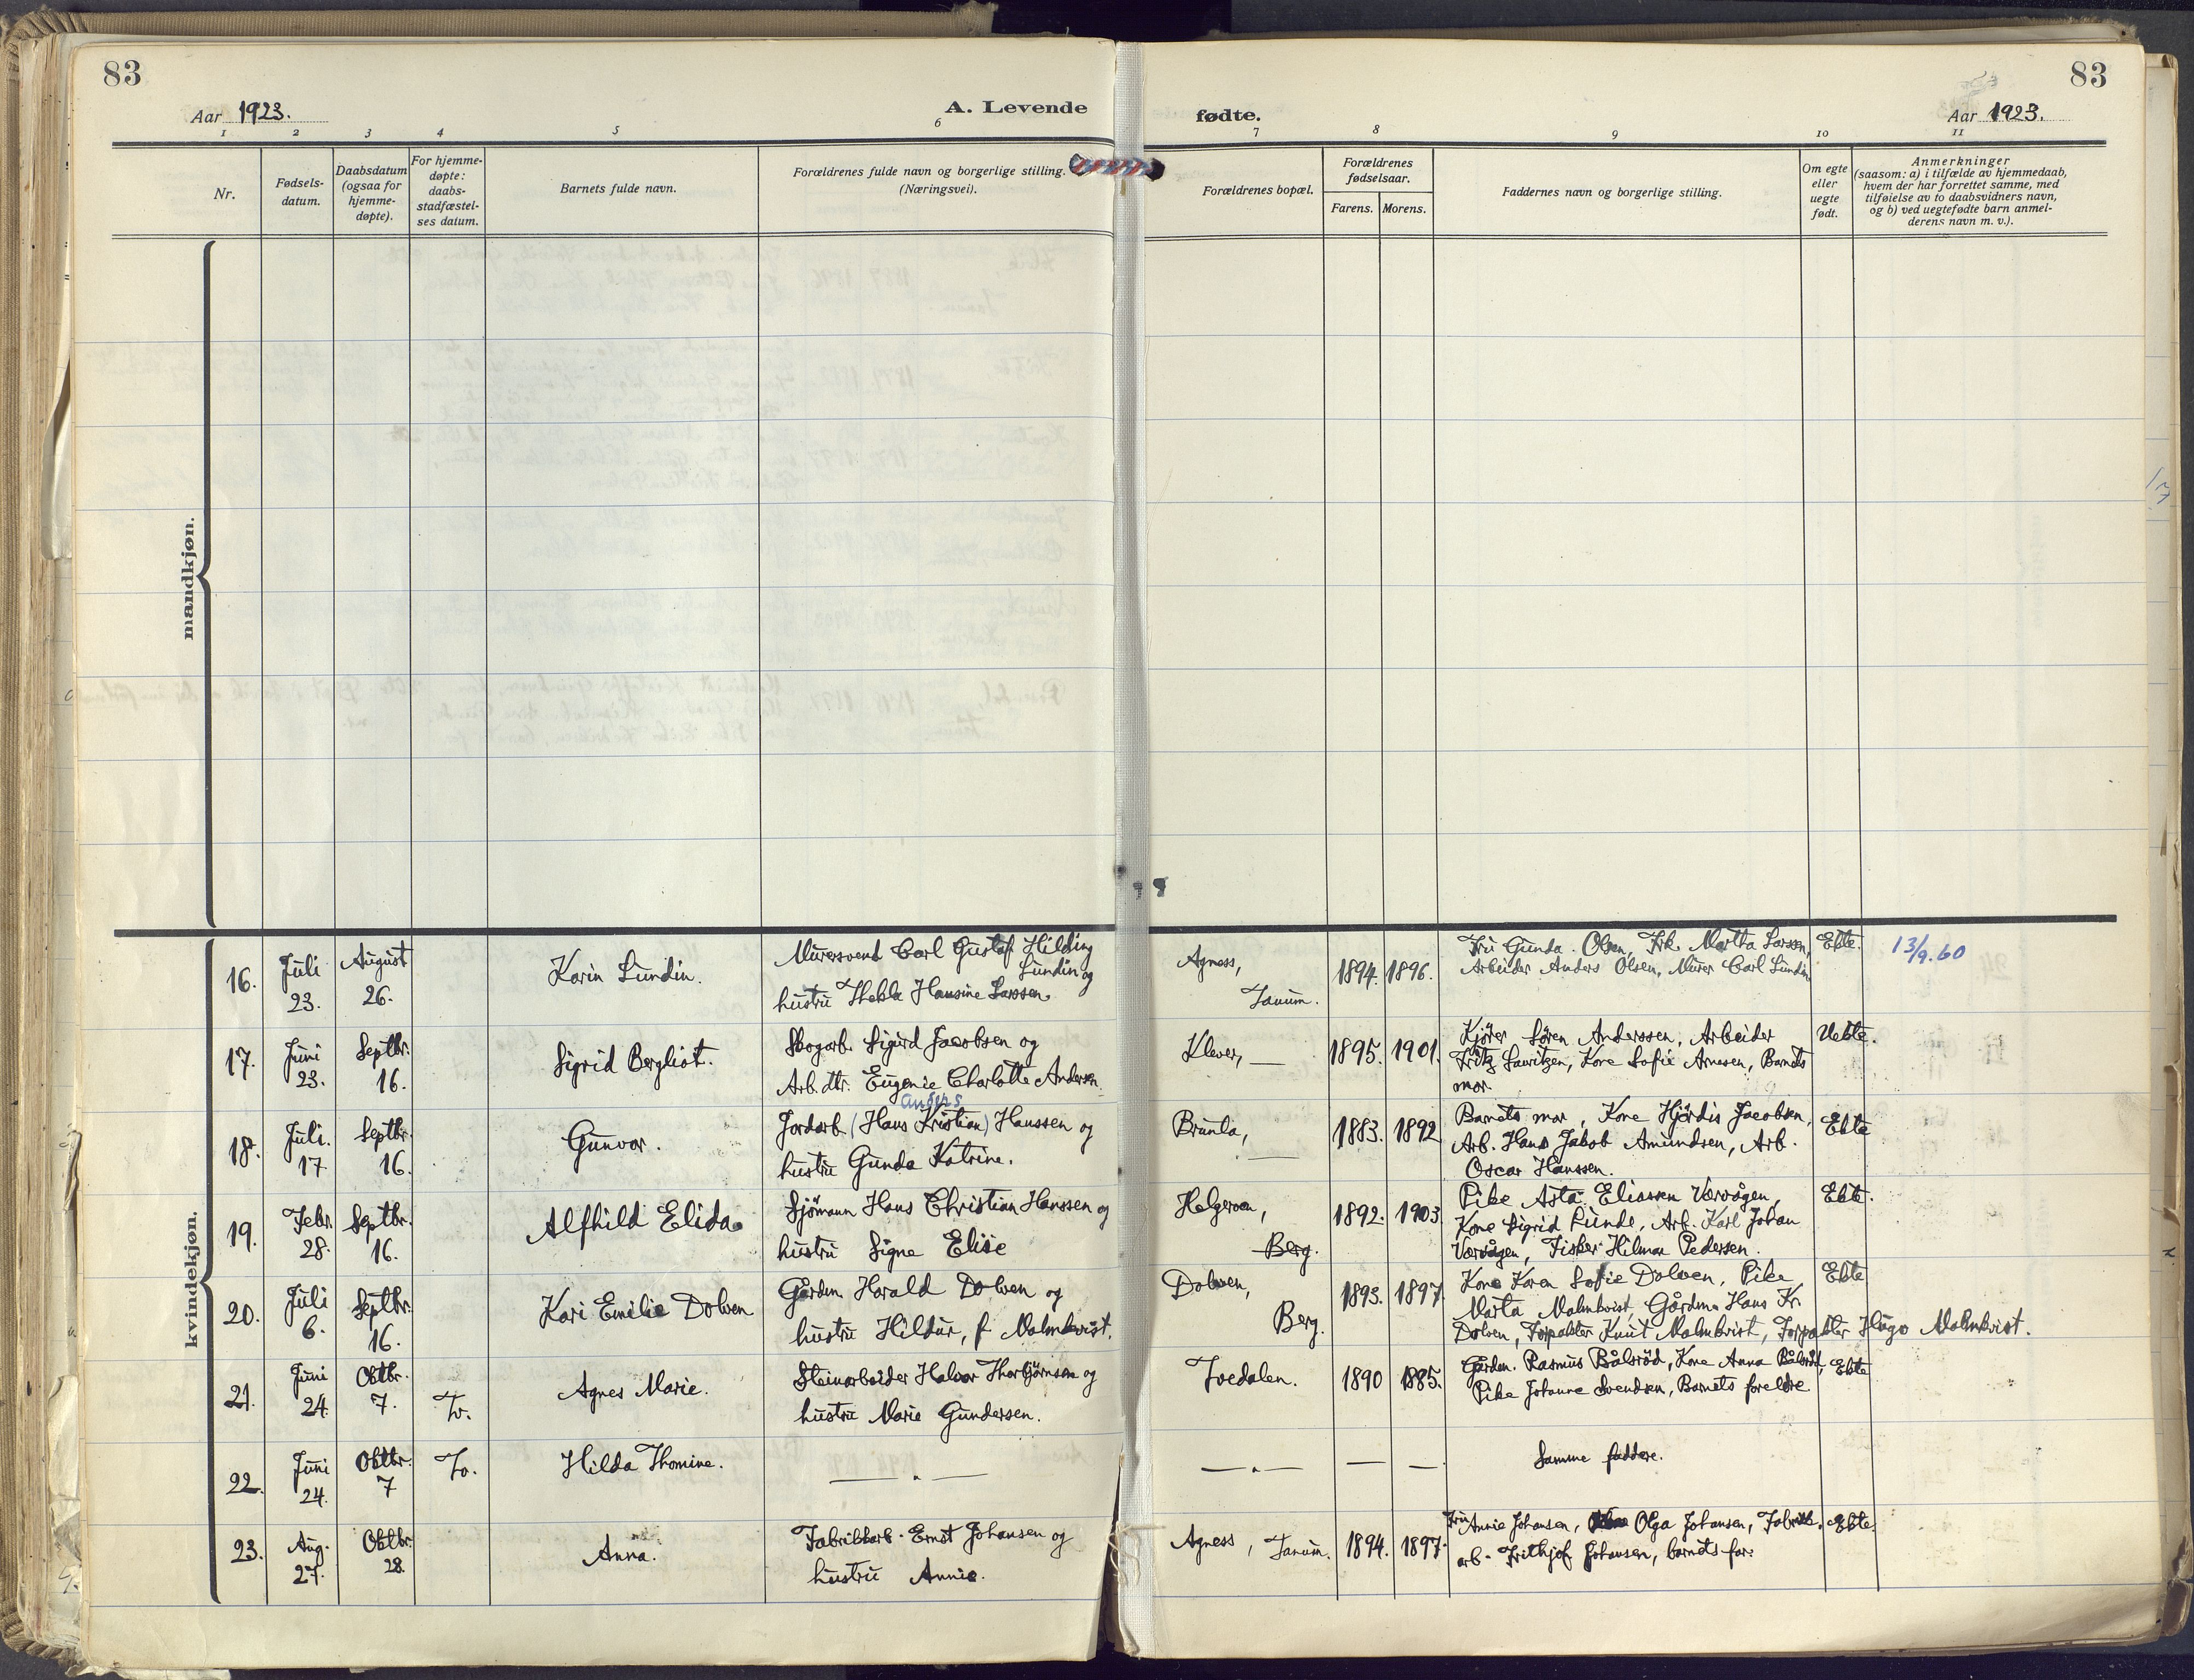 83
Aar 1923.
A. Levende
fødte.
Aar 1923.
83
1 2 3 4 5 6 7 8 9 10 11
Nr.
Fødsels-
datum.
Daabsdatum
(ogsaa for
hjemme-
døpte).
For hjemme-
døpte:
daabs-
stadfæstel-
ses datum.
Barnets fulde navn.
Forældrenes fulde navn og borgerlige stilling.
(Næringsvei).
Forældrenes bopæl.
Forældrenes
fødselsaar.
Farens. Morens.
Faddernes navn og borgerlige stilling.
Om egte
eller
uegte
født.
Anmerkninger
(saasom: a) i tilfælde av hjemmedaab,
hvem der har forrettet samme, med
tilføielse av to daabsvidners navn,
og b) ved uegtefødte barn anmel-
derens navn m. v.).
mandkjøn.
kvindekjøn.
16.
Juli
23.
August
26.
Karin Lundin.
Murersvend Carl Gustaf Hilding
Lundin og
hustru Thekla Hansine Larssen.
Agness,
Tanum.
1894. 1896.
Fru Gunda Olsen, Frk. Martha Larssen,
Arbeider Anders Olsen, Murer Carl Lundin
Ekte.
13/9.60
17.
Juni
23.
Septbr.
16.
Sigrid Bergliot.
Skogarb. Sigurd Jacobsen og
Arb. dtr. Eugenie Charlotte Andersen
Klever, —
1895. 1901.
Kjører Søren Anderssen, Arbeider
Fritz Lauritzen, Kone Sofie Arnesen, Barnets
mor.
Uekte.
18.
Juli.
17
Septbr.
16.
Gunvor.
Anders
Jordarb. (Hans Kristian) Hanssen og
hustru Gunda Katrine.
Brunla,
—
1883. 1892
Barnets mor, Kone Hjørdis Jacobsen,
Arb. Hans Jakob Amundsen, Arb.
Oscar Hanssen.
Ekte
19.
Febr.
28.
Septbr.
16.
Alfhild Elida.
Sjømann Hans Christian Hanssen og
hustru Signe Elise
Helgeroen,
Berg.
1892. 1903.
Pike Asta Eliassen Værvågen,
Kone Sigrid Lunde, Arb. Karl Johan
Værvågen, Fisker Hilmar Pedersen.
Ekte.
20.
Juli
6.
Septbr.
16.
Kari Emilie Dolven
Gårdm. Harald Dolven og
hustru Hildur, f. Malmkvist.
Dolven,
Berg.
1893. 1897
Kone Karen Sofie Dolven, Pike
Marta Malmkvist, Gårdm. Hans Kr.
Dolven, Forpakter Knut Malmkvist, Forpakter Hugo Malmkvist.
Ekte
21.
Juni
24.
Oktbr.
7.
To.
Agnes Marie.
Steinarbeider Halvor Thorbjørnsen og
hustru Marie Gundersen.
Tvedalen.
1890 1885.
Gårdm. Rasmus Bålsrød, Kone Anna Bålsrød,
Pike Johanne Svendsen, Barnets foreldre
Ekte
22.
Juni
24.
Oktbr.
7
To.
Hilda Thomine.
— " —
— " —
— —
Samme faddere.
23.
Aug.
27.
Oktbr.
28.
Anna.
Fabrikkarb. Ernst Johansen og
hustru Annie.
Agness, Tanum.
1894. 1897.
Fru Annie Johansen, Olga Johansen, Fabrikk.
arb. Frithjof Johansen, barnets far.
Ekte.